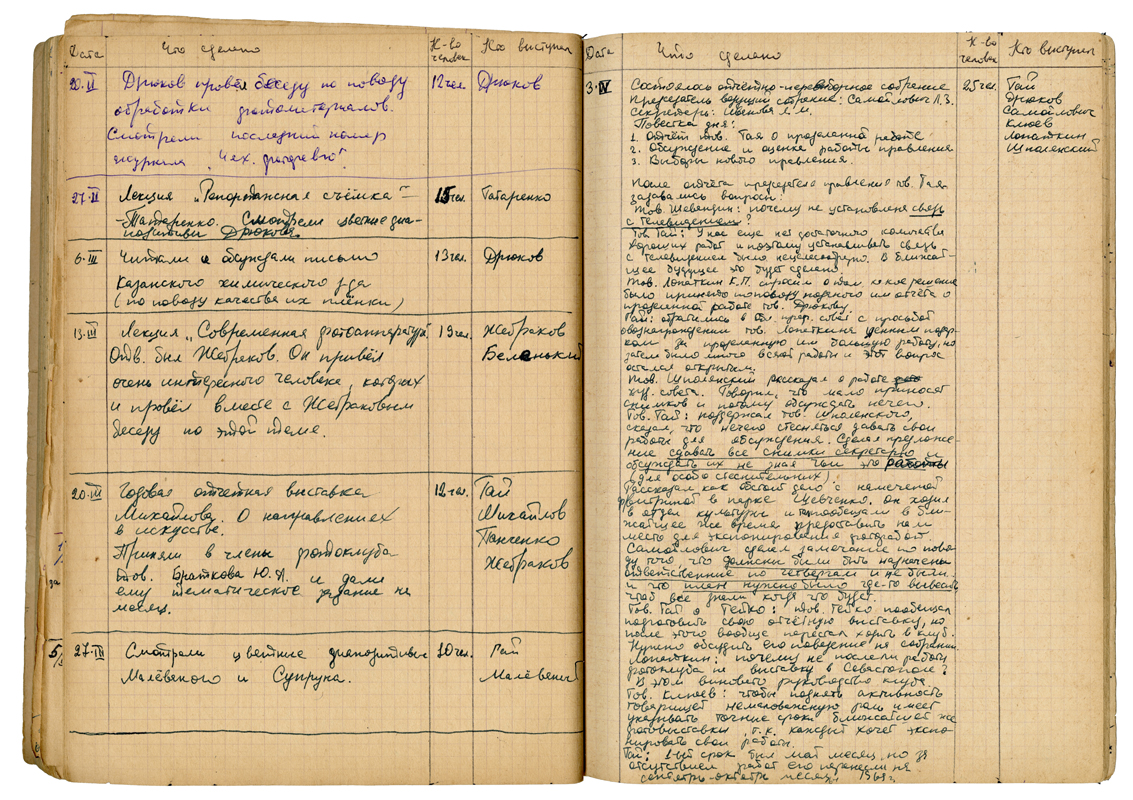 Дата
Что сделано
К-во человек
Кто выступал
20·II
Дрюков провёл беседу по поводу
обработки фотоматериалов.
Смотрели последний номер
журнала "Чех. фоторевю"
12 чел.
Дрюков
27·II
Лекция "Репортажная съёмка" –
– Татаренко. Смотрели цветные диа-
позитивы Дрюкова
15 чел.
Татаренко
6·III
Читали и обсуждали письмо
Казанского химического з-да
(по поводу качества их плёнки)
13 чел
Дрюков
13·III
Лекция "Современная фотоаппаратура".
Отв. был Жебраков. Он привёл
очень интересного человека, который
и провёл вместе с Жебраковым
беседу по этой теме.
19 чел.
Жебраков
Беленький
20·III
Годовая отчётная выставка
Михайлова. О направлениях
в искусстве.
Приняли в члены фотоклуба
тов. Браткова Ю.А. и дали
ему тематическое задание на
месяц.
12 чел.
Гай
Михайлов
Панченко
Жебраков
27·III
Смотрели цветные диапозитивы
Малёваного и Супруна.
10 чел.
Гай
Малёваный
Дата
Что сделано
К-во человек
Кто выступал
3·IV
Состоялось отчётно-перевыборное собрание
Председатель ведущий собрание: Самойлович Л.З.
Секретарь: Иванова Л.М.
Повестка дня:
1. Отчёт тов. Гая о проделанной работе
2. Обсуждение и оценка работы правления
3. Выборы нового правления.
25 чел.
Гай
Дрюков
Самойлович
Клюев
Лопаткин
Шполянский
После отчёта председателя правления тов. Гая
задавались вопросы:
Тов. Шевендин: почему не установлена связь
с телевидением?
Тов. Гай: У нас ещё нет достаточного количества
хороших работ и поэтому устанавливать связь
с телевидением было нецелесообразно. В ближай-
щее будущее это будет сделано.
Тов. Лопаткин К.П. спросил о том, какое решение
было принято по поводу поданого им отчёта о
проделанной работе тов. Дрюкову
Гай: обратились в обл. проф. совет с просьбой
о вознаграждении тов. Лопаткина ценным подар-
ком за проделанную им большую работу, но
затем было много всякой работы и этот вопрос
остался открытым.
Тов. Шполянский рассказал о работе
худ. совета. Говорил, что мало приносят
снимков и потому обсуждать нечего.
Тов. Гай: поддержал тов. Шполянского,
сказал, что нечего стесняться давать свои
работы для обсуждения. Сделал предложе-
ние сдавать все снимки секретарю и
обсуждать их не зная чьи это работы
(для особо стеснительных).
Рассказал как обстоит дело с намеченой
фотовитриной в парке Шевченко. Он ходил
в отдел культуры и там пообещали в бли-
жайшее же время предоставить нам
место для экспонирования фоторабот.
Самойлович сделал замечание по пово-
ду того что должны были быть назначены
ответственные по четвергам и не были.
и что план нужно было где-то вывесить
чтоб все знали когда что будет.
Тов. Гай о Гейко: тов. Гейко пообещал
подготовить свою отчётную выставку, но
после этого вообще перестал ходить в клуб.
Нужно обсудить его поведение на собрании
Лопаткин: почему не послали работы
фотоклуба на выставку в Севастополе?
В этом виновато руководство клуба
Тов. Клюев: чтобы поднять активность
товарищей немаловажную роль имеет
указывать точные сроки ближайшей же
фотовыставки, т.к. каждый хочет экспо-
нировать свои работы.
Гай: 1-ый срок был май месяц, но за
отсутствием работ его перенесли на
сентябрь-октябрь месяц 1969 г.